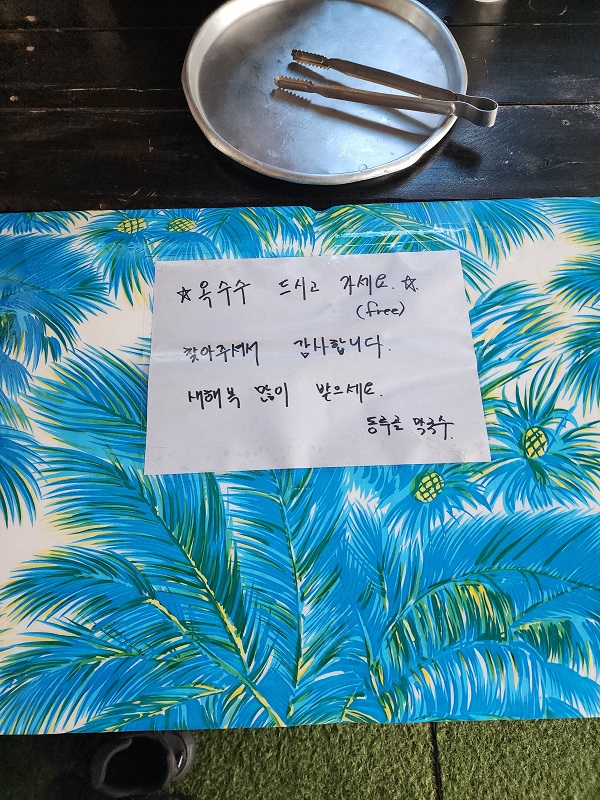 ☆옥수수 드시고 가세요.☆
(free)
찾아주셔서 감사합니다.
새해 복 많이 받으세요.
동추골 막국수.